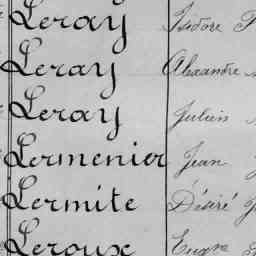 Leray Isidore
Leray Alexandre
Leray Julien
Lermenier Jean
Lermite Désiré
Leroux Eugne